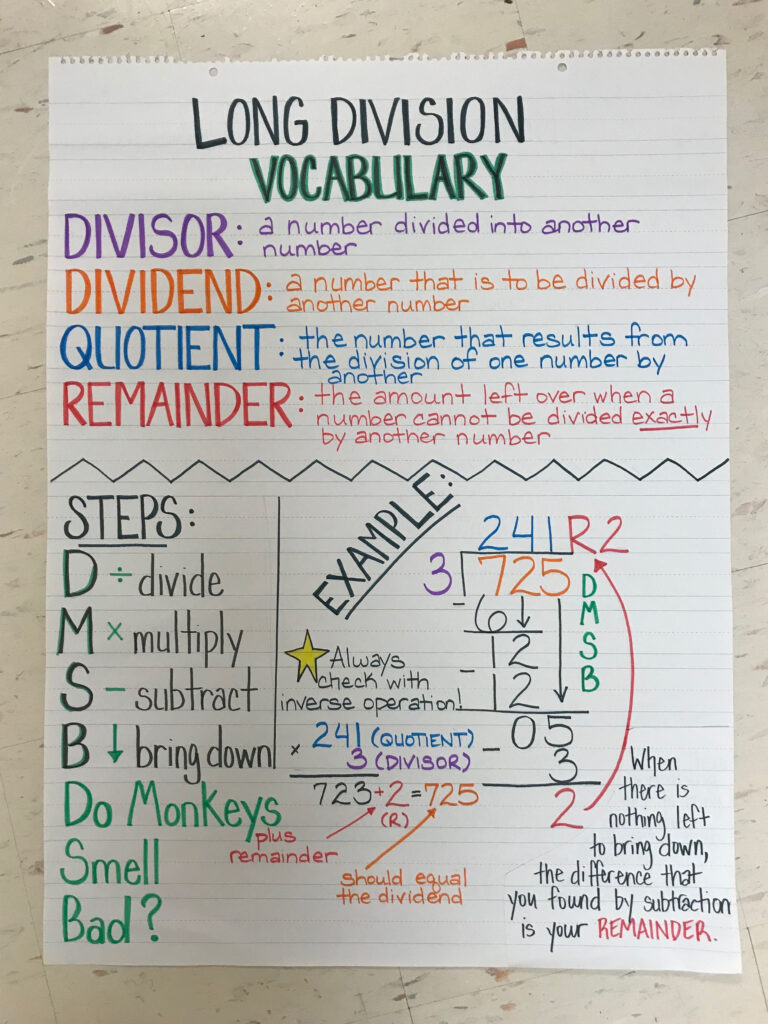 LONG DIVISION
VOCABULARY
DIVISOR: a number divided into another
number
DIVIDEND: a number that is to be divided by
another number
QUOTIENT: the number that results from
the division of one number by
another
REMAINDER: the amount left over when a
number cannot be divided exactly
by another number
STEPS:
D ÷ divide
M × multiply
S - subtract
B ↓ bring down
Do Monkeys
Smell
Bad?
EXAMPLE:
241 R2
3 725
- 6
12
- 12
05
- 3
2
D
M
S
B
Always
check with
inverse operation!
241 (QUOTIENT)
× 3 (DIVISOR)
723 + 2 = 725
(R)
plus
remainder
should equal
the dividend
When
there is
nothing left
to bring down,
the difference that
you found by subtraction
is your REMAINDER.